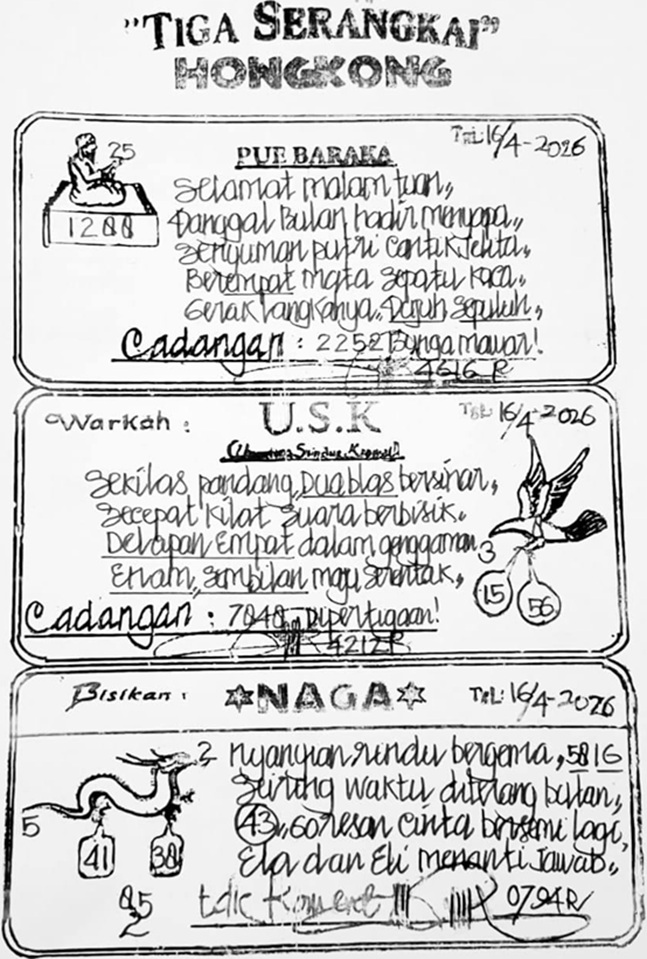 "TIGA SERANGKAI"
HONGKONG
25
1288
PUE BARAKA
TGL: 16/4-2026
Selamat malam tuan,,
Tanggal Bulan hadir menyapa,,
Senyuman putri cantik jelita,,
Berempat mata sepatu kaca,,
Gerak langkahnya,, Tujuh Sepuluh,,
Cadangan : 2252 Bunga mawar!
4616 R
Warkah :
U.S.K
TGL: 16/4-2026
Sekilas pandang, Dua blas bersinar,,
Secepat kilat Suara berbisik,,
Delapan Empat dalam genggaman
Enam, Sembilan maju Serentak,,
3
15
56
Cadangan : 7848 Dipertigaan!
4212 R
Bisikan :
NAGA
TGL: 16/4-2026
2
5
41
38
85
2
Nyanyian rindu bergema, 5816
Seiring waktu diterang bulan,,
43,, Goresan Cinta bersemi lagi,
Ela dan Eli menanti Jawab,,
0794 R